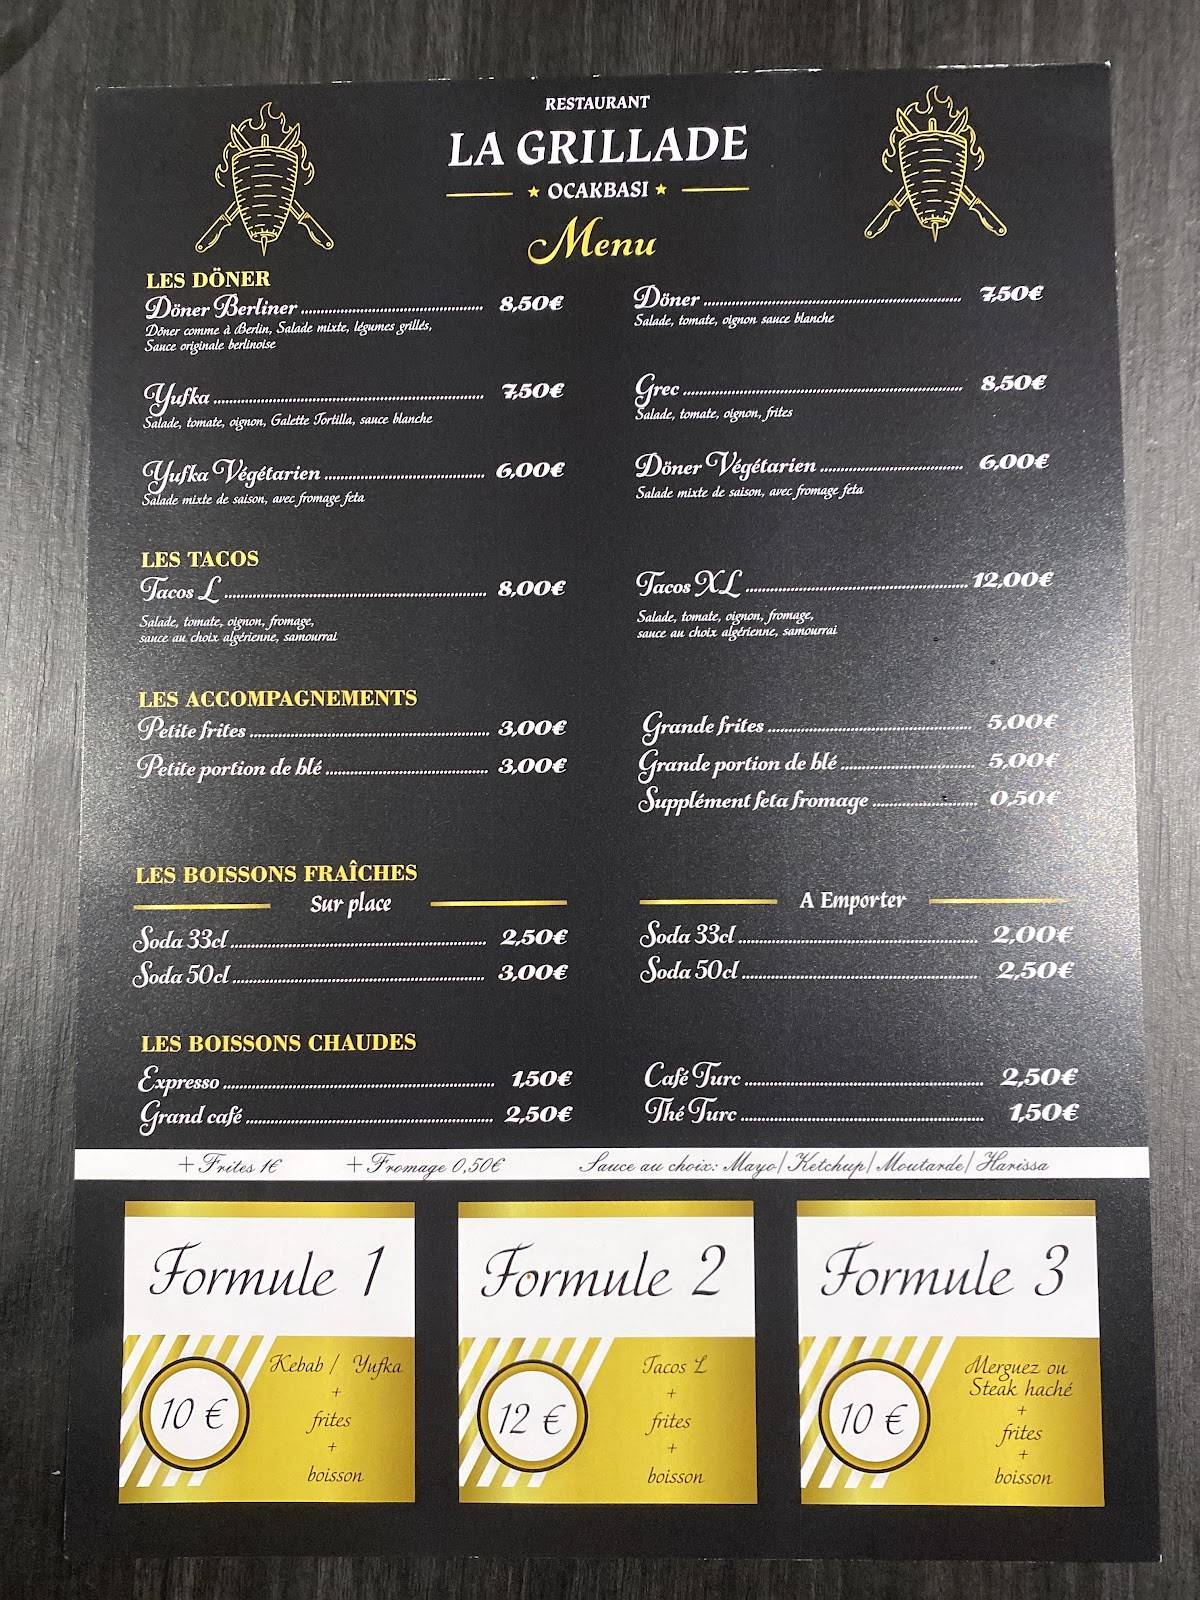 RESTAURANT
LA GRILLADE
OCAKBASI
Menu
LES DÖNER
Döner Berliner 8,50€
Döner comme à Berlin, Salade mixte, légumes grillés,
Sauce originale berlinoise
Döner 7,50€
Salade, tomate, oignon sauce blanche
Yufka 7,50€
Salade, tomate, oignon, Galette Tortilla, sauce blanche
Grec 8,50€
Salade, tomate, oignon, frites
Yufka Végétarien 6,00€
Salade mixte de saison, avec fromage feta
Döner Végétarien 6,00€
Salade mixte de saison, avec fromage feta
LES TACOS
Tacos L 8,00€
Salade, tomate, oignon, fromage,
sauce au choix algérienne, samourrai
Tacos XL 12,00€
Salade, tomate, oignon, fromage,
sauce au choix algérienne, samourrai
LES ACCOMPAGNEMENTS
Petite frites 3,00€
Petite portion de blé 3,00€
Grande frites 5,00€
Grande portion de blé 5,00€
Supplément feta fromage 0,50€
LES BOISSONS FRAÎCHES
Sur place
Soda 33cl 2,50€
Soda 50cl 3,00€
A Emporter
Soda 33cl 2,00€
Soda 50cl 2,50€
LES BOISSONS CHAUDES
Expresso 1,50€
Grand café 2,50€
Café Turc 2,50€
Thé Turc 1,50€
+ Frites 1€ + Fromage 0,50€ Sauce au choix: Mayo/ Ketchup/ Moutarde/ Harissa
Formule 1
10 €
Kebab / Yufka
+
frites
+
boisson
Formule 2
12 €
Tacos L
+
frites
+
boisson
Formule 3
10 €
Merguez ou
Steak haché
+
frites
+
boisson